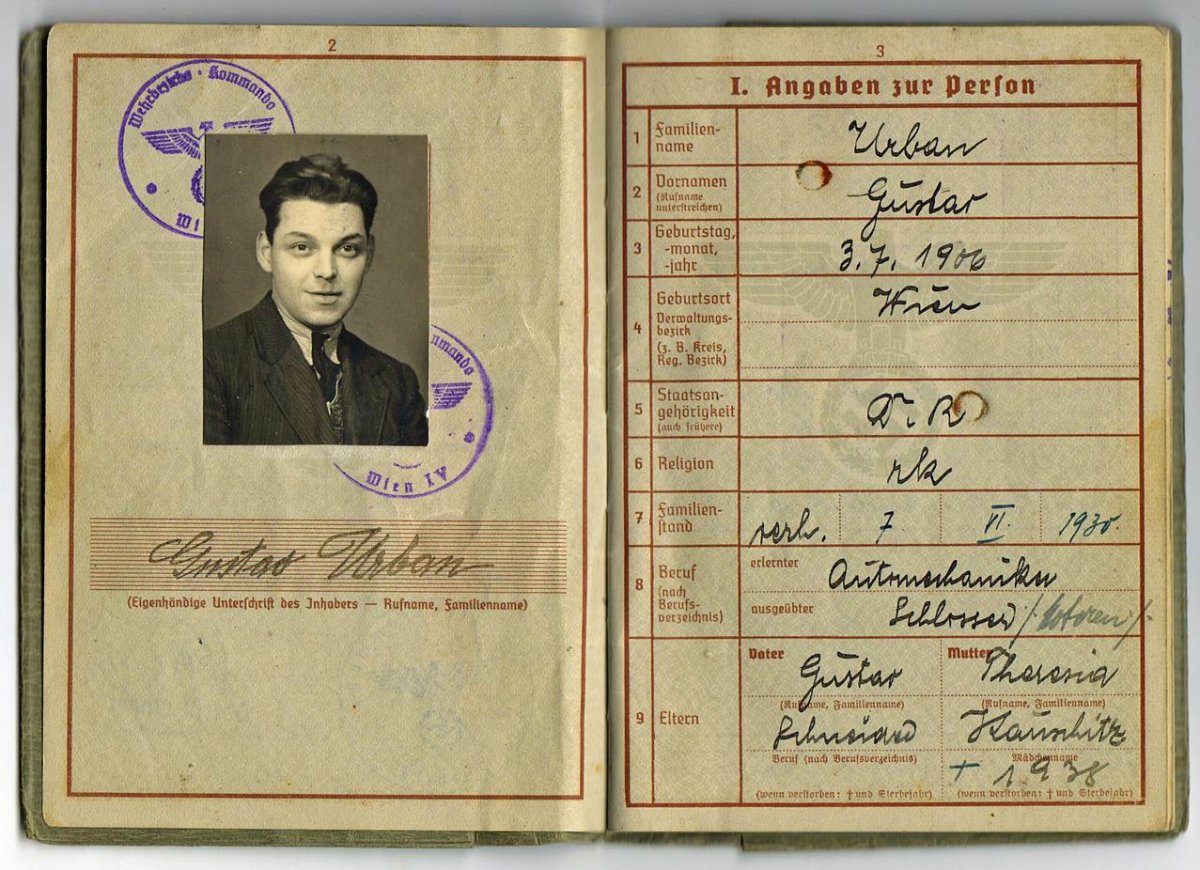 2
Wehrbezirks-Kommando
Wi
mmando
Wien IV
Gustav Urban
(Eigenhändige Unterschrift des Inhabers — Rufname, Familienname)
3
I. Angaben zur Person
1 Familien-
name
Urban
2 Vornamen
(Rufname
unterstreichen)
Gustav
3 Geburtstag,
-monat,
-jahr
3. 7. 1906
4 Geburtsort
Verwaltungs-
bezirk
(z. B. Kreis,
Reg. Bezirk)
Wien
5 Staatsan-
gehörigkeit
(auch frühere)
D. R.
6 Religion
rk
7 Familien-
stand
verh. 7. VI. 1930.
8 Beruf
(nach
Berufs-
verzeichnis)
erlernter Automechaniker
ausgeübter Schlosser
9 Eltern
Vater Mutter
Gustav Theresia
(Rufname, Familienname) (Rufname, Familienname)
Schneider Hauschitz
Beruf (nach Berufsverzeichnis) Mädchenname
+ 1938
(wenn verstorben: † und Sterbejahr) (wenn verstorben: † und Sterbejahr)